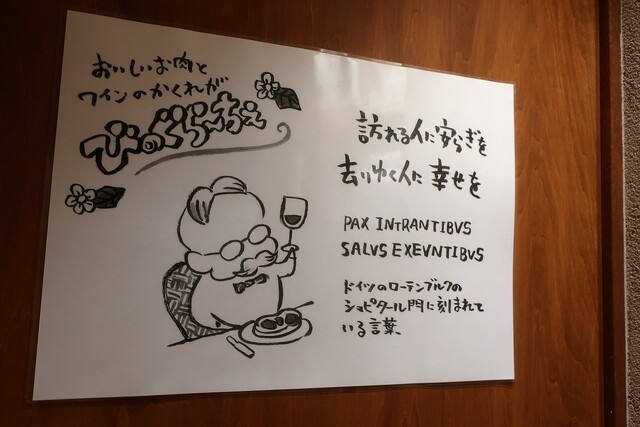 おいしいお肉と
ワインのかくれが
びーぐらっちぇ
訪れる人に安らぎを
去りゆく人に幸せを
PAX INtRANTIBVS
SALVS EXEVNTIBVS
ドイツのローテンブルクの
シュピタール門に刻まれて
いる言葉、